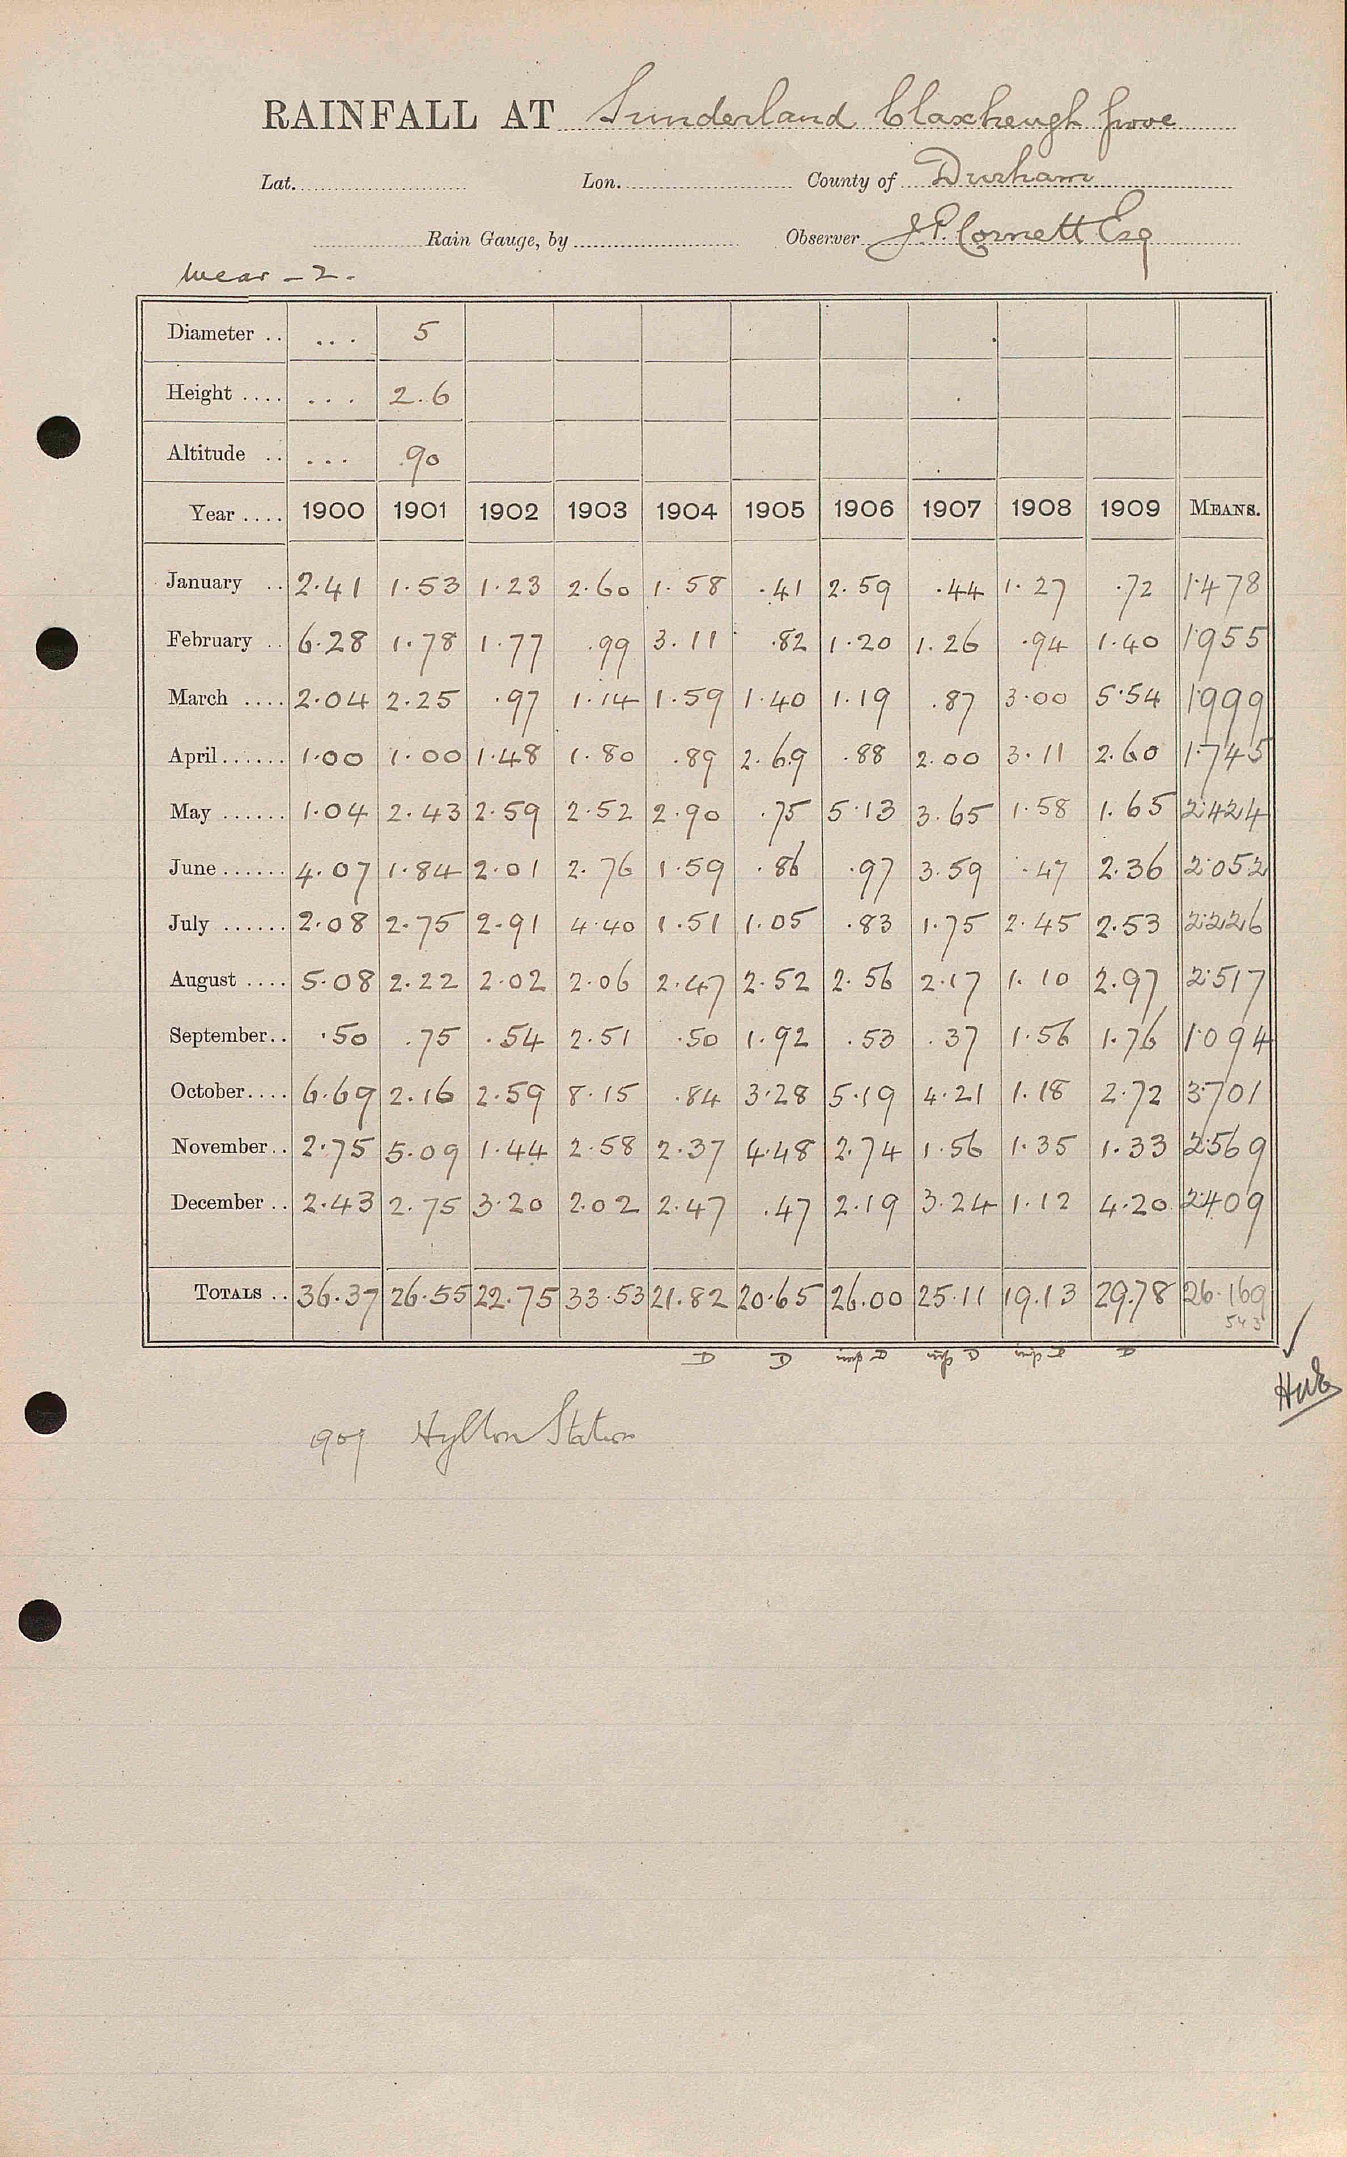 RAINFALL AT Sunderland Claxheugh Grove
Lat. Lon. County of Durham
Rain Gauge, by Observer J. P. Cornett Esq
Wear - 2.
Diameter .. ... 5
Height .... ... 2.6
Altitude .. ... 90
Year .... 1900 1901 1902 1903 1904 1905 1906 1907 1908 1909 MEANS.
January .. 2.41 1.53 1.23 2.60 1.58 .41 2.59 .44 1.27 .72 1.478
February .. 6.28 1.78 1.77 .99 3.11 .82 1.20 1.26 .94 1.40 1.955
March .... 2.04 2.25 .97 1.14 1.59 1.40 1.19 .87 3.00 5.54 1.999
April ...... 1.00 1.00 1.48 1.80 .89 2.69 .88 2.00 3.11 2.60 1.745
May ...... 1.04 2.43 2.59 2.52 2.90 .75 5.13 3.65 1.58 1.65 2.424
June ...... 4.07 1.84 2.01 2.76 1.59 .86 .97 3.59 .47 2.36 2.052
July ...... 2.08 2.75 2.91 4.40 1.51 1.05 .83 1.75 2.45 2.53 2.226
August .... 5.08 2.22 2.02 2.06 2.47 2.52 2.56 2.17 1.10 2.97 2.517
September .. .50 .75 .54 2.51 .50 1.92 .53 .37 1.56 1.76 1.094
October .... 6.69 2.16 2.59 8.15 .84 3.28 5.19 4.21 1.18 2.72 3.701
November .. 2.75 5.09 1.44 2.58 2.37 4.48 2.74 1.56 1.35 1.33 2.569
December .. 2.43 2.75 3.20 2.02 2.47 .47 2.19 3.24 1.12 4.20 2.409
TOTALS .. 36.37 26.55 22.75 33.53 21.82 20.65 26.00 25.11 19.13 29.78 26.169
543
D D D D D
1909 Hylton Station